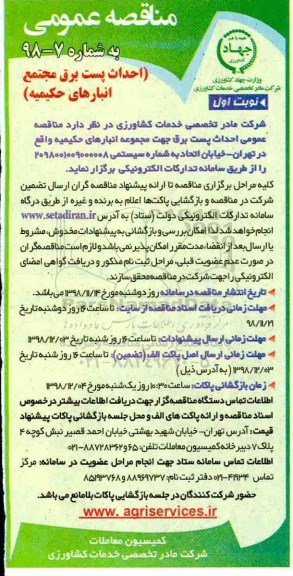 مناقصه عمومی
به شماره ۷-۹۸
(احداث پست برق مجتمع
انبارهای حکیمیه)
جهاد
وزارت جهاد کشاورزی
شرکت مادر تخصصی خدمات کشاورزی
نوبت اول
شرکت مادر تخصصی خدمات کشاورزی در نظر دارد مناقصه
عمومی احداث پست برق جهت مجموعه انبارهای حکیمیه واقع
در تهران-خیابان اتحاد به شماره سیستمی ۲۰۹۸۰۰۱۰۰۹۰۰۰۰۰۸
را از طریق سامانه تدارکات الکترونیکی برگزار نماید.
کلیه مراحل برگزاری مناقصه تا ارائه پیشنهاد مناقصه گران ارسال تضمین
شرکت در مناقصه و بازگشایی پاکت‌ها اعلام به برنده و غیره از طریق درگاه
سامانه تدارکات الکترونیکی دولت (ستاد) به آدرس www.setadiran.ir
انجام خواهد شد لذا امکان بررسی و بازگشائی به پیشنهادات مخدوش، مشروط
یا ارسال بعد از انقضاء مدت مقرر امکان پذیر نمی باشد و لازم است مناقصه گران
در صورت عدم عضویت قبلی، مراحل ثبت نام مذکور و دریافت گواهی امضای
الکترونیکی را جهت شرکت در مناقصه محقق سازند.
تاریخ انتشار مناقصه در سامانه روز دوشنبه مورخ ۱۳۹۸/۱۱/۱۴ می باشد.
مهلت زمانی دریافت اسناد مناقصه از سایت: تا ساعت ۱۶ روز دوشنبه تاریخ
۹۸/۱۱/۲۱
مهلت زمانی ارسال پیشنهادات: تا ساعت ۱۶ روز شنبه تاریخ ۱۳۹۸/۱۲/۰۳
مهلت زمانی ارسال اصل پاکت الف (تضمین): تا ساعت ۱۶ روز شنبه تاریخ
۱۳۹۸/۱۲/۰۳ (به آدرس ذیل)
زمان بازگشائی پاکات: ساعت ۱۰:۳۰ روز یک شنبه مورخ ۱۳۹۸/۱۲/۰۴
اطلاعات تماس دستگاه مناقصه گزار جهت دریافت اطلاعات بیشتر در خصوص
اسناد مناقصه و ارائه پاکت های الف و محل جلسه بازگشایی پاکات پیشنهاد
قیمت: آدرس تهران- خیابان شهید بهشتی خیابان احمد قصیر نبش کوچه ۴
پلاک ۷ دبیرخانه کمیسیون معاملات تلفن: ۰۲۱-۸۸۷۲۸۳۶۲۶۵
اطلاعات تماس سامانه ستاد جهت انجام مراحل عضویت در سامانه: مرکز
تماس ۴۱۹۳۴-۰۲۱ دفتر ثبت نام: ۸۸۹۶۹۷۳۷ و ۸۵۱۹۳۷۶۸
حضور شرکت کنندگان در جلسه بازگشایی پاکات بلامانع می باشد.
www.agriservices.ir
کمیسیون معاملات
شرکت مادر تخصصی خدمات کشاورزی